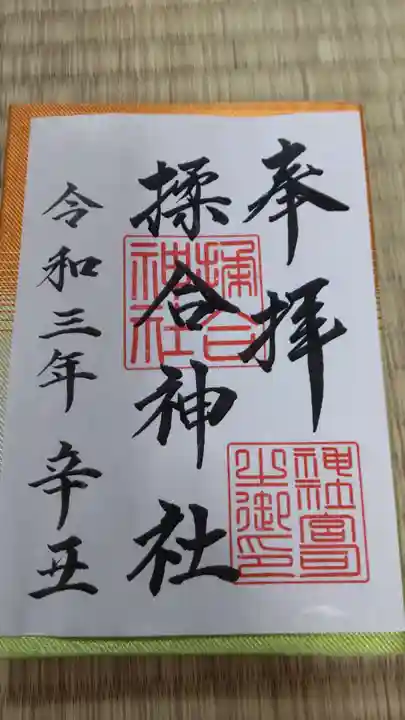 奉拝
揉合神社
令和三年 辛丑
揉合
神社
神社宮司
之御印